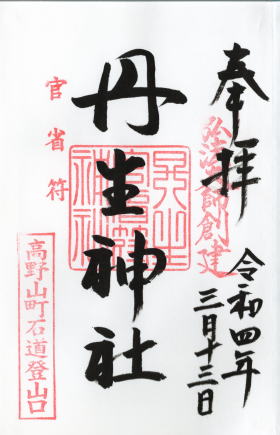 奉拝
弘法大師創建
令和四年
三月十三日
丹生神社
官省符
高野山町石道登山口